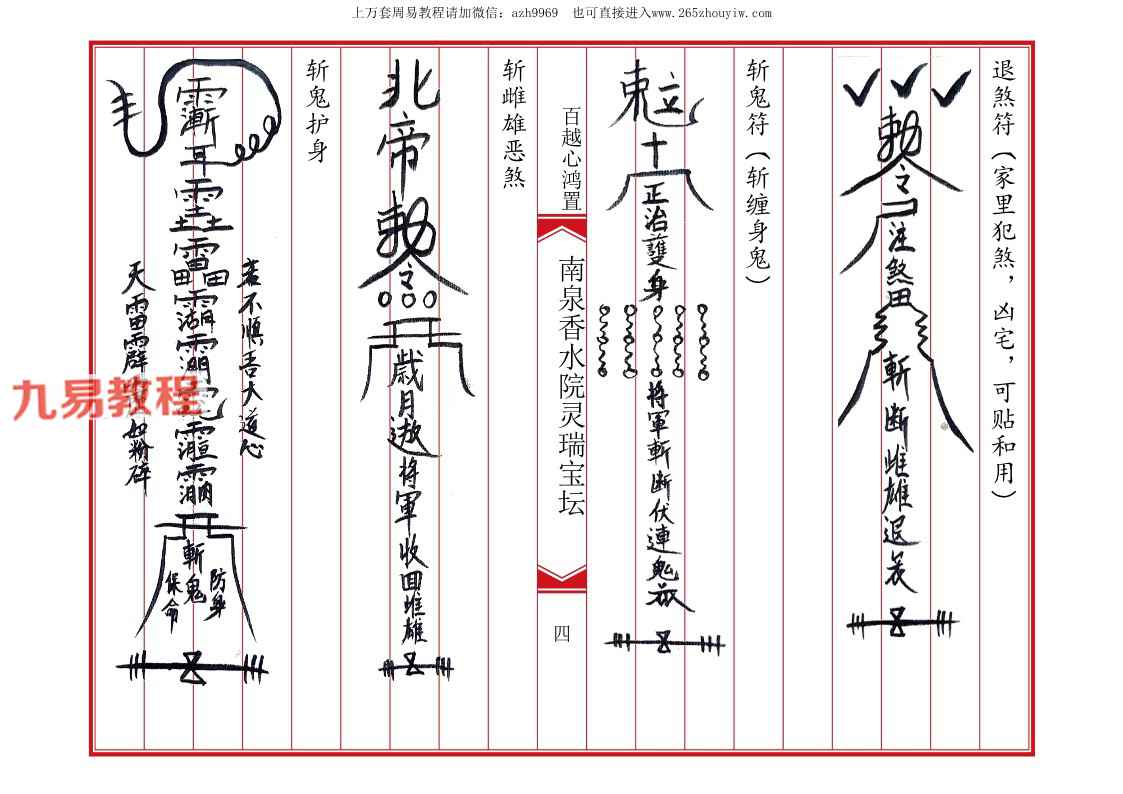 上万套周易教程请加微信：azh9969　也可直接进入www.265zhouyiw.com
退煞符（家里犯煞，凶宅，可贴和用）
勅令
注煞田
斬断雌雄退
斩鬼符（斩缠身鬼）
十
正治護身
将軍斬断伏連鬼
百越心鸿置
南泉香水院灵瑞宝坛
四
斩雌雄恶煞
北帝勅令
歳月
将軍收回雌雄
斩鬼护身
若不順吾大道心
天雷霹
如粉碎
斬鬼
防身
保命
九易教程